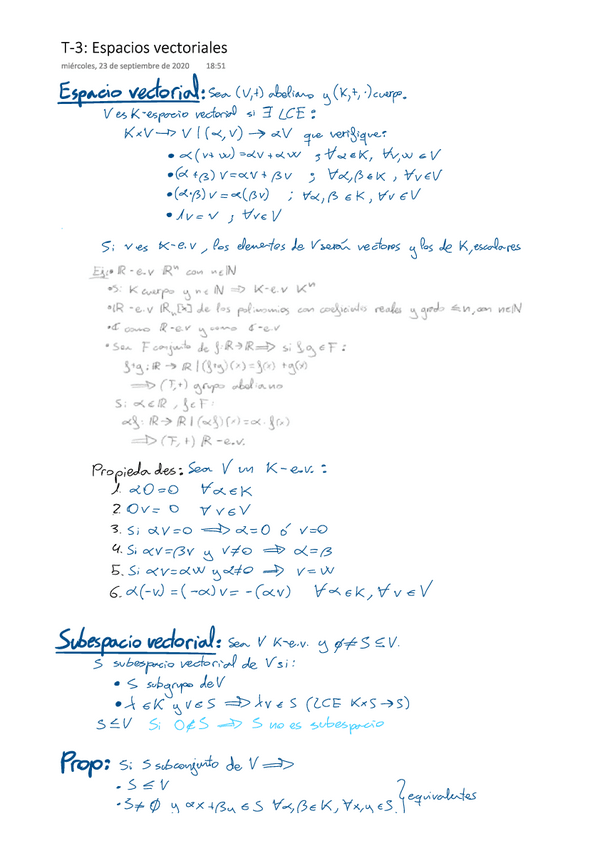 T-3: Espacios vectoriales
miércoles, 23 de septiembre de 2020 18:51
Espacio vectorial: Sea (V,+) abeliano y (K,+,·) cuerpo.
V es K-espacio vectorial si ∃ LCE:
K×V → V | (α,V) → αV que verifique:
• α(v+w)=αv+αw ; ∀α∈K, ∀v,w∈V
• (α+β)v=αv+βv ; ∀α,β∈K, ∀v∈V
• (α·β)v=α(βv) ; ∀α,β∈K, ∀v∈V
• 1v=v ; ∀v∈V
Si V es K-e.v, los elementos de V serán vectores y los de K, escalares
Ej: • ℝ-e.v ℝⁿ con n∈ℕ
• Si K cuerpo y n∈ℕ ⟹ K-e.v Kⁿ
• ℝ-e.v ℝₙ[x] de los polinomios con coeficiente reales y grado ≤n, con n∈ℕ
• ℂ como ℝ-e.v y como ℂ-e.v
• Sea F conjunto de f:ℝ→ℝ ⟹ si f,g∈F:
f+g:ℝ→ℝ | (f+g)(x)=f(x)+g(x)
⟹ (F,+) grupo abeliano
Si α∈ℝ, f∈F:
αf:ℝ→ℝ | (αf)(x)=α·f(x)
⟹ (F,+) ℝ-e.v.
Propiedades: Sea V un K-e.v.:
1. α0=0 ∀α∈K
2. 0v=0 ∀v∈V
3. Si αv=0 ⟹ α=0 ó v=0
4. Si αv=βv y v≠0 ⟹ α=β
5. Si αv=αw y α≠0 ⟹ v=w
6. α(-v)=(-α)v=-(αv) ∀α∈K, ∀v∈V
Subespacio vectorial: Sea V K-e.v. y ∅≠S⊆V.
S subespacio vectorial de V si:
• S subgrupo de V
• λ∈K y v∈S ⟹ λv∈S (LCE K×S→S)
S≤V Si 0∉S ⟹ S no es subespacio
Prop: Si S subconjunto de V ⟹
• S≤V
• S≠∅ y αx+βy∈S ∀α,β∈K, ∀x,y∈S } equivalentes